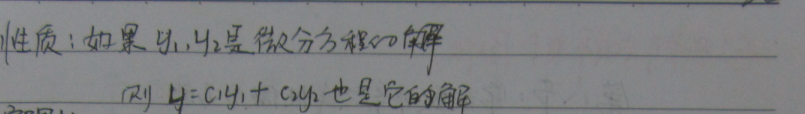 性质：如果 y₁, y₂是微分方程(1)的解
则 y=c₁y₁+c₂y₂也是它的解